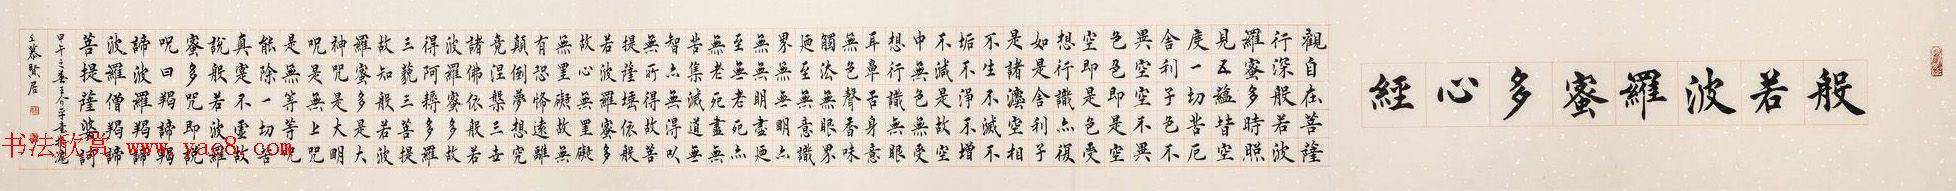 般若波羅蜜多心經
觀自在菩薩
行深般若波
羅蜜多時照
見五蘊皆空
度一切苦厄
舍利子色不
異空空不異
色色即是空
空即是色受
想行識亦復
如是舍利子
是諸灋空相
不生不滅不
垢不淨不增
不減是故空
中無色無受
想行識無眼
耳鼻舌身意
無色聲香味
觸法無眼界
廼至無意識
界無無明亦
無無明盡廼
至無老死亦
無老死盡無
苦集滅道無
智亦無得以
無所得故菩
提薩埵依般
若波羅蜜多
故心無罣礙
無罣礙故無
有恐怖遠離
顛倒夢想究
竟涅槃三世
諸佛依般若
波羅蜜多故
得阿耨多羅
三藐三菩提
故知般若波
羅蜜多是大
神咒是大明
咒是無上咒
是無等等咒
能除一切苦
真實不虛故
說般若波羅
蜜多咒即說
呪曰羯諦羯
諦波羅羯諦
波羅僧羯諦
菩提薩婆訶
甲午之春 書於滬
之慕賢居
书法欣赏 www.yac8.com